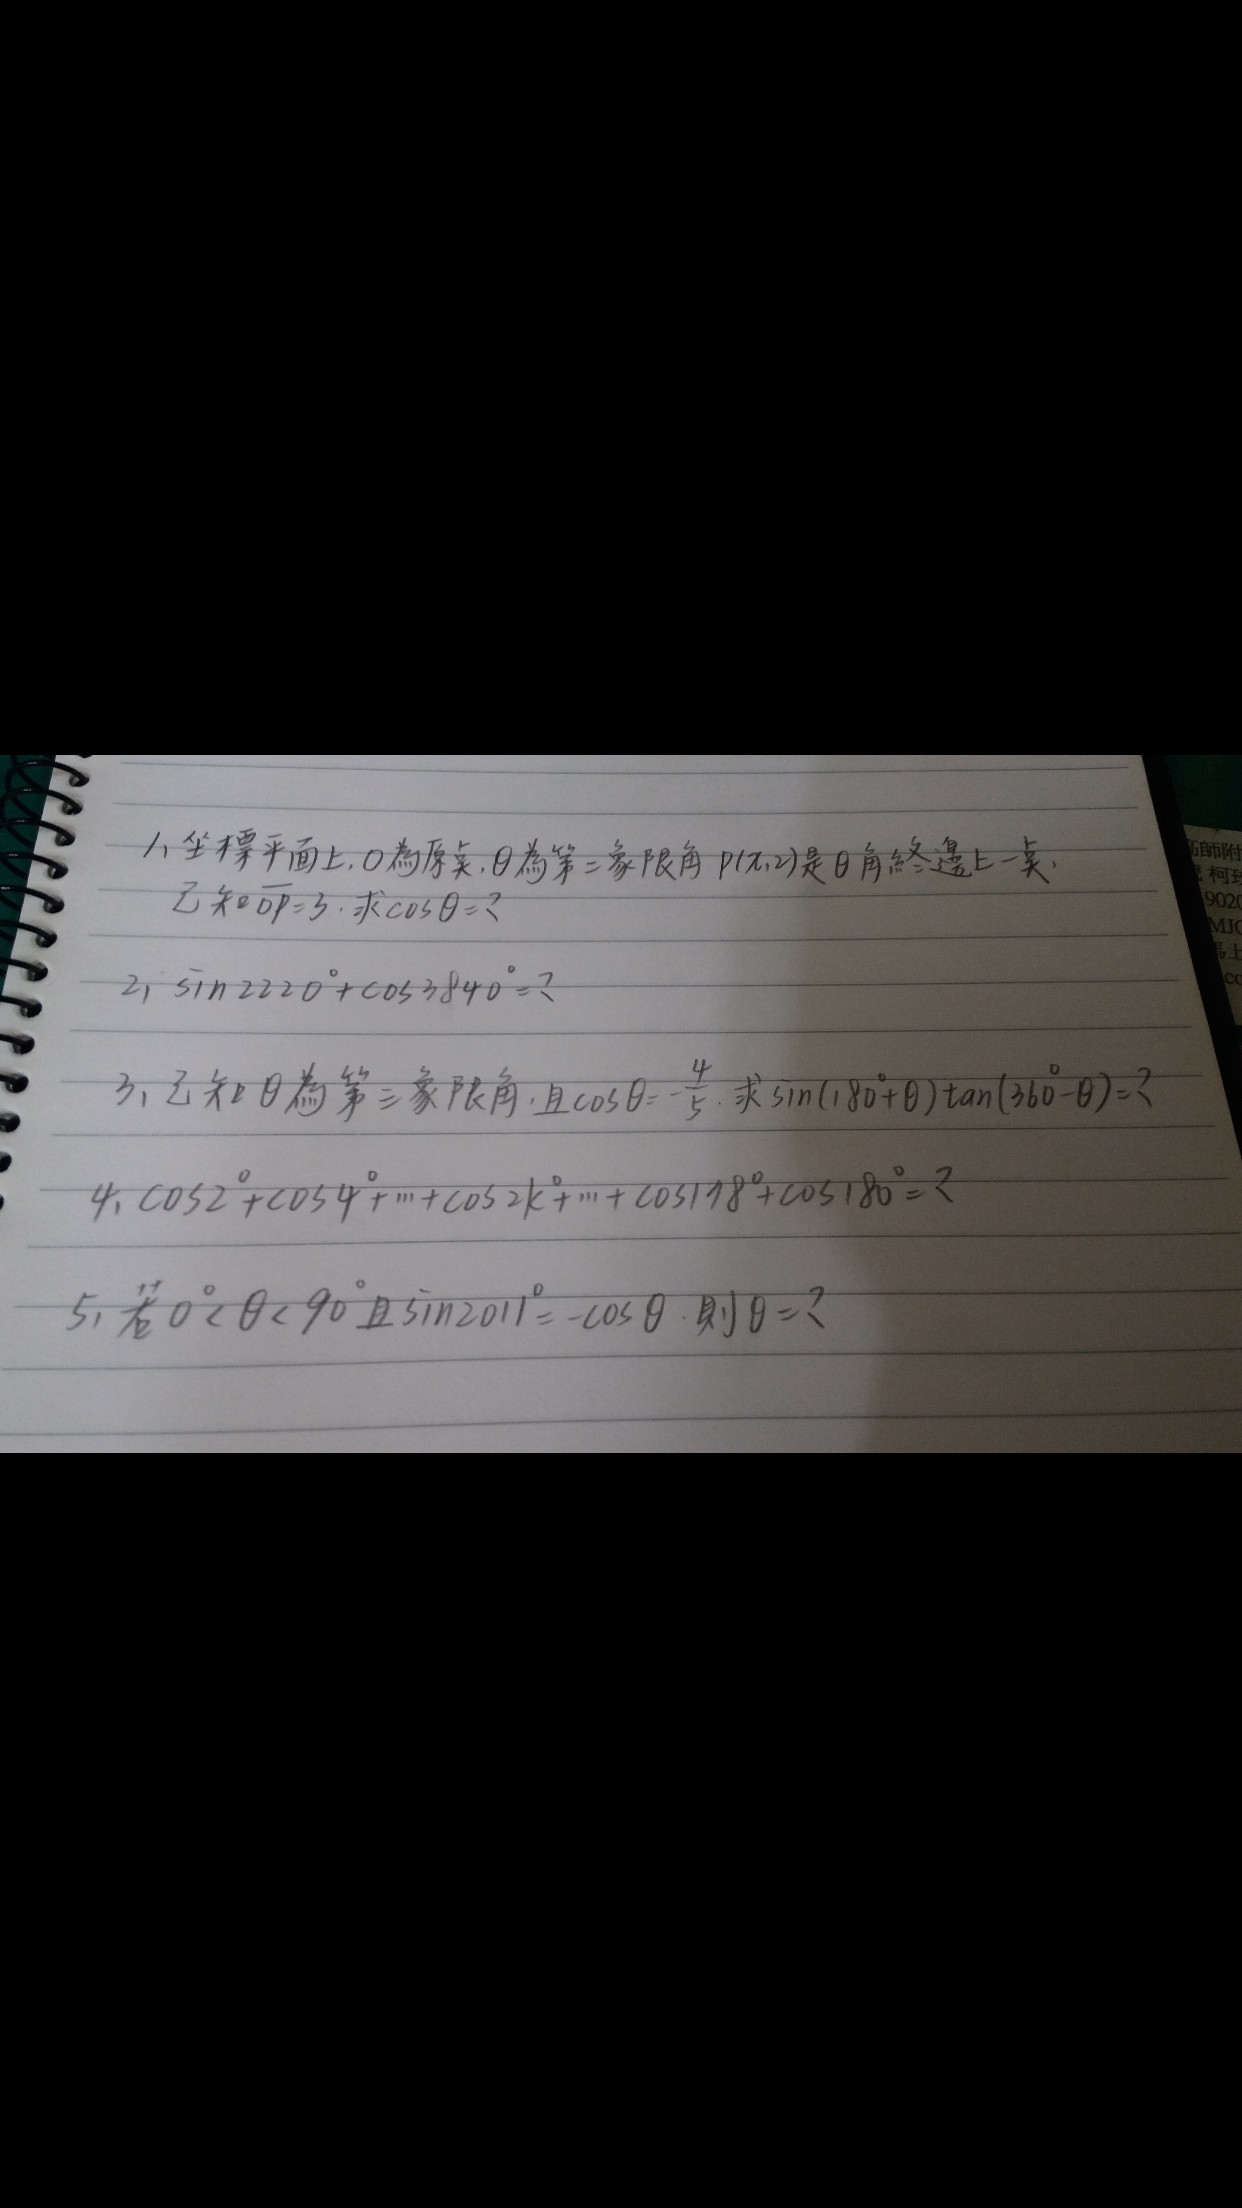 1、坐標平面上,O為原點,θ為第二象限角 P(x,2)是θ角終邊上一點,
已知OP=3,求cosθ=?
2、sin2220°+cos3840°=?
3、已知θ為第三象限角,且cosθ=-4/5,求sin(180°+θ)tan(360°-θ)=?
4、cos2°+cos4°+…+cos2k°+…+cos178°+cos180°=?
5、若0°<θ<90°且sin2011°=-cosθ,則θ=?
高師附
柯
902
MJ
馬上